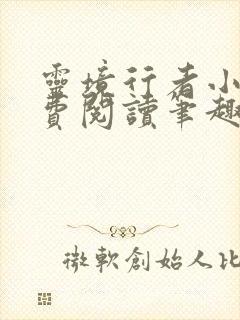 靈境行者小
費閱讀筆趣
微軟創始人比